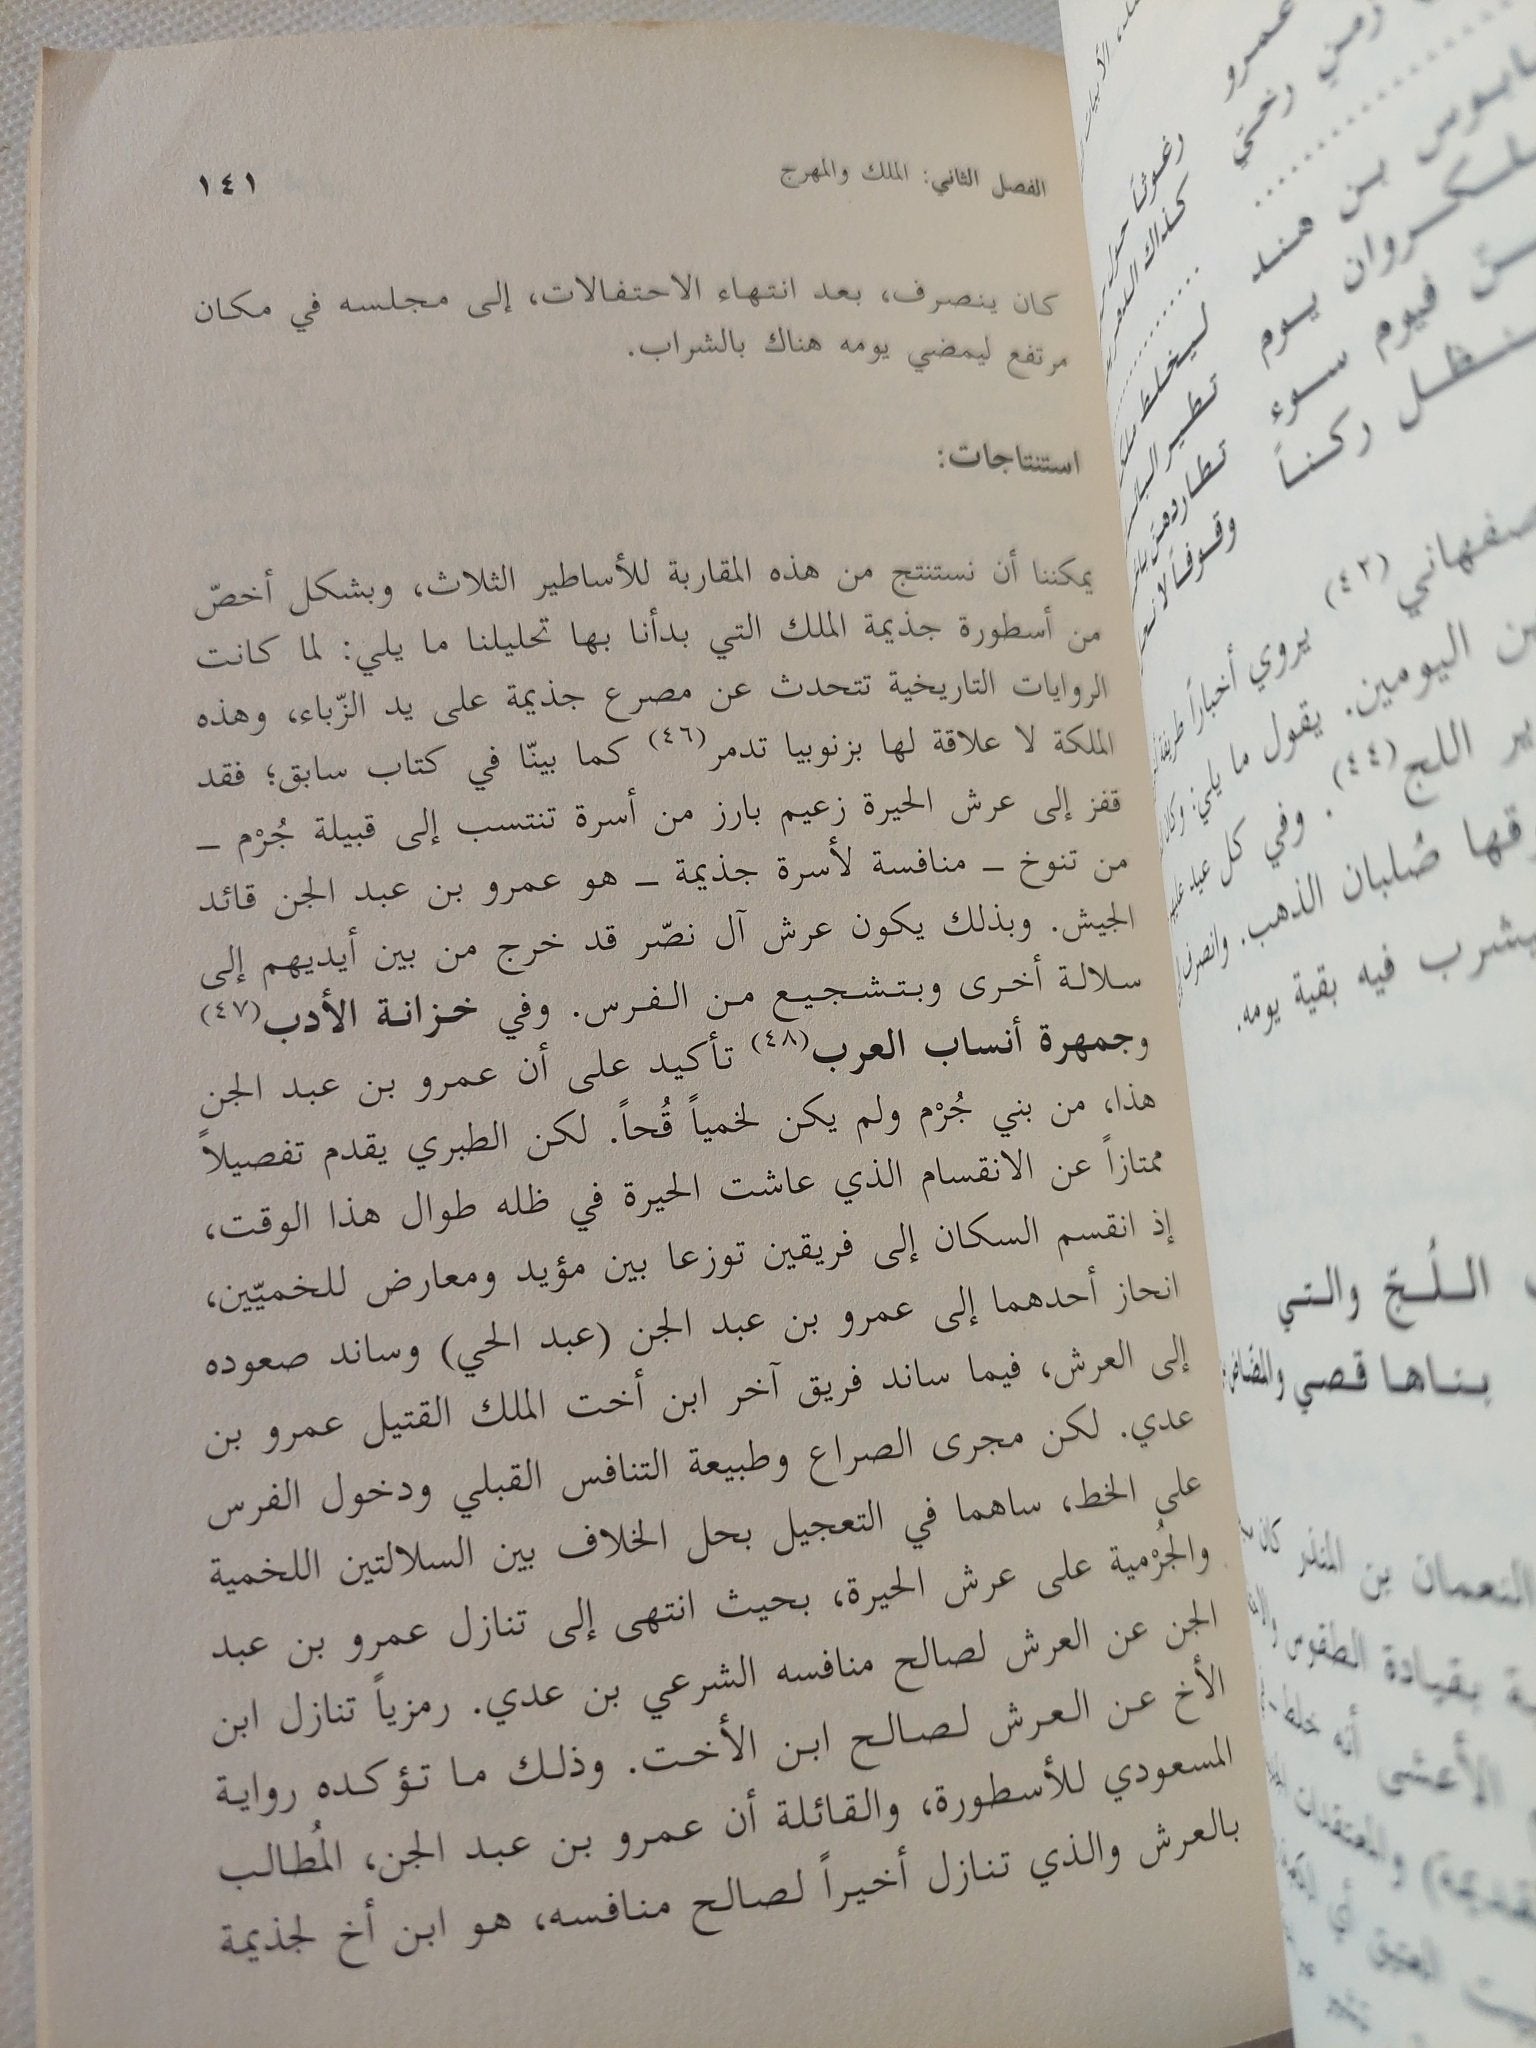 الفصل الثاني: الملك والمهرج
١٤١
كان ينصرف، بعد انتهاء الاحتفالات، إلى مجلسه في مكان
مرتفع ليمضي يومه هناك بالشراب.
استنتاجات:
يمكننا أن نستنتج من هذه المقاربة للأساطير الثلاث، وبشكل أخصّ
من أسطورة جذيمة الملك التي بدأنا بها تحليلنا ما يلي: لما كانت
الروايات التاريخية تتحدث عن مصرع جذيمة على يد الزّباء، وهذه
الملكة لا علاقة لها بزنوبيا تدمر(٤٦) كما بينّا في كتاب سابق؛ فقد
قفز إلى عرش الحيرة زعيم بارز من أسرة تنتسب إلى قبيلة جُرْم ـ
من تنوخ ـ منافسة لأسرة جذيمة ـ هو عمرو بن عبد الجن قائد
الجيش. وبذلك يكون عرش آل نصّر قد خرج من بين أيديهم إلى
سلالة أخرى وبتشجيع من الفرس. وفي خزانة الأدب(٤٧)
وجمهرة أنساب العرب(٤٨) تأكيد على أن عمرو بن عبد الجن
هذا، من بني جُرْم ولم يكن لخمياً قُحاً. لكن الطبري يقدم تفصيلاً
ممتازاً عن الانقسام الذي عاشت الحيرة في ظله طوال هذا الوقت،
إذ انقسم السكان إلى فريقين توزعا بين مؤيد ومعارض للخميّين،
انحاز أحدهما إلى عمرو بن عبد الجن (عبد الحي) وساند صعوده
إلى العرش، فيما ساند فريق آخر ابن أخت الملك القتيل عمرو بن
عدي. لكن مجرى الصراع وطبيعة التنافس القبلي ودخول الفرس
على الخط، ساهما في التعجيل بحل الخلاف بين السلالتين اللخمية
والجُرْمية على عرش الحيرة، بحيث انتهى إلى تنازل عمرو بن عبد
الجن عن العرش لصالح منافسه الشرعي بن عدي. رمزياً تنازل ابن
الأخ عن العرش لصالح ابن الأخت. وذلك ما تؤكده رواية
المسعودي للأسطورة، والقائلة أن عمرو بن عبد الجن، المُطالب
بالعرش والذي تنازل أخيراً لصالح منافسه، هو ابن أخ لجذيمة
عمرو
زمني رخيّ
بن هند
يوم
فيوم سوء
ركناً
(٤٢) يروي أخباراً
اليومين. يقول ما يلي:
اللج(٤٤). وفي كل عيد
صُلبان الذهب. وانصرف
فيه بقية يومه.
اللُجّ والتي
بناها قصي
النعمان بن المنذر كان
بقيادة الطقوس
الأعشى أنه خلط